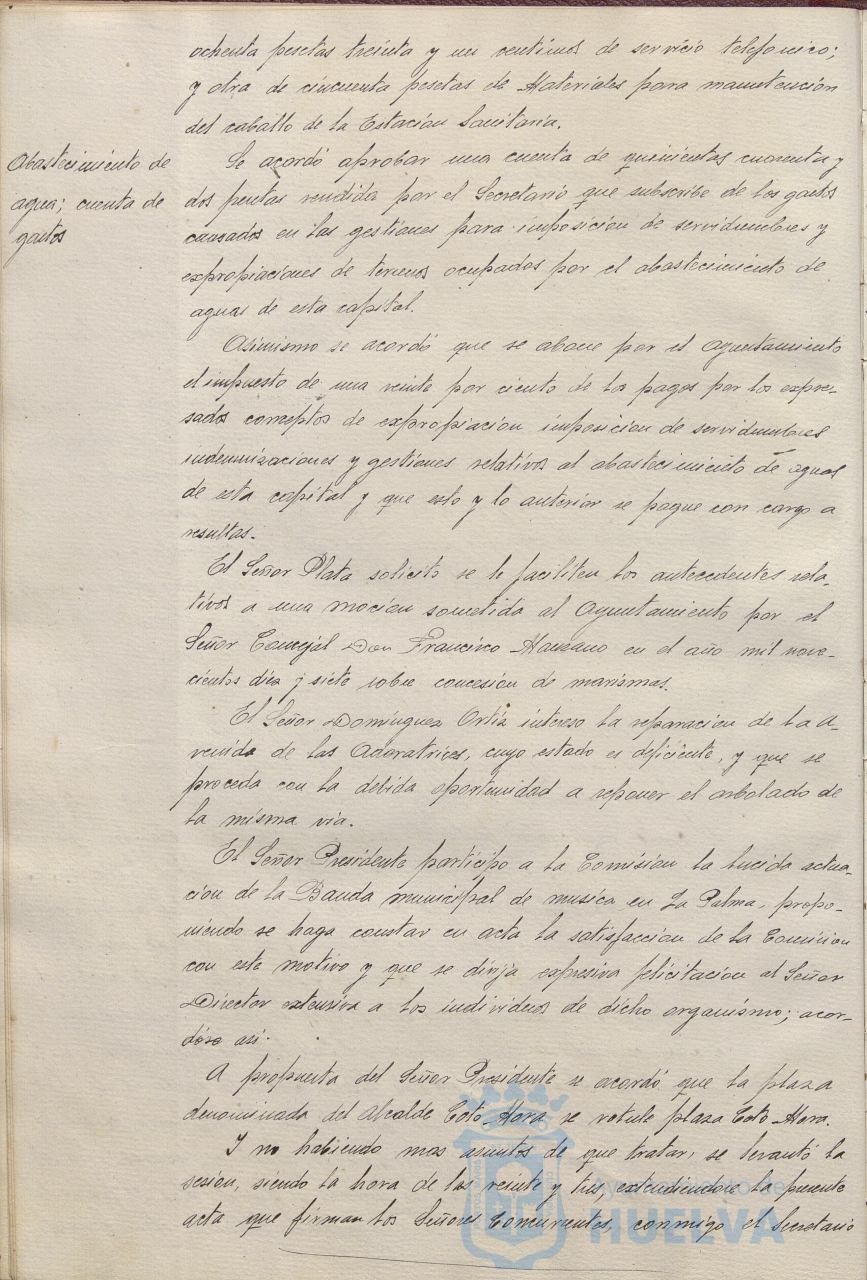 ochenta pesetas treinta y un centimos de servicio telefonico;
y otra de cincuenta pesetas de Materiales para manutención
del caballo de la Estación Sanitaria.
Abastecimiento de
agua; cuenta de
gastos
Se acordó aprobar una cuenta de quinientas cuarenta y
dos pesetas rendida por el Secretario que subscribe de los gastos
causados en las gestiones para imposicion de servidumbres y
expropiaciones de terrenos ocupados por el abastecimiento de
aguas de esta capital.
Asimismo se acordó que se abone por el Ayuntamiento
el impuesto de una veinte por ciento de los pagos por los expre-
sados conceptos de expropiacion imposicion de servidumbres
indemnizaciones y gestiones relativos al abastecimiento de aguas
de esta capital y que esto y lo anterior se pague con cargo a
resultas.-
El Señor Plata solicitó se le faciliten los antecedentes rela-
tivos a una mocion sometida al Ayuntamiento por el
Señor Concejal Don Francisco Manzano en el año mil nove-
cientos diez y siete sobre concesion de marismas.
El Señor Dominguez Ortiz intereso la reparacion de la A-
venida de las Adoratrices, cuyo estado es deficiente, y que se
proceda con la debida oportunidad a reponer el arbolado de
la misma via.
El Señor Presidente participó a la Comision la lucida actua-
cion de la Banda municipal de musica en La Palma, propo-
niendo se haga constar en acta la satisfaccion de la Comision
con este motivo y que se dirija expresiva felicitacion al Señor
Director extensiva a los individuos de dicho organismo; acor-
dóse asi.
A propuesta del Señor Presidente se acordó que la plaza
denominada del Alcalde Coto Mora se rotule plaza Coto Mora.
Y no habiendo mas asuntos de que tratar, se levantó la
sesion, siendo la hora de las veinte y tres, extendiendose la presente
acta que firman los Señores Concurrentes, conmigo el Secretario
Ayuntamiento de
HUELVA